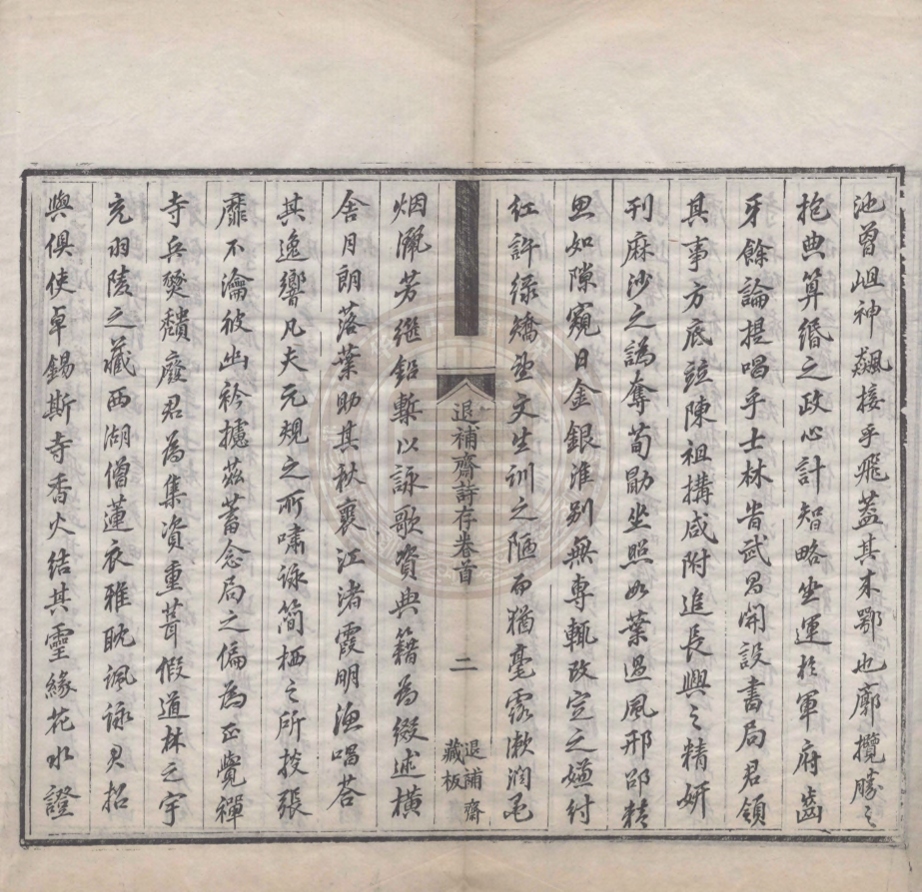 池曾岨神飈接乎飛蓋其才鄂也廓攬勝之
抱典算緡之政心計智略坐運於軍府齒
牙餘論提唱乎士林當武昌開設書局君領
其事方底竝陳祖構咸附追長興之精妍
刊麻沙之譌奪荀勖坐照如葉過風邢邵精
思如隙窺日金銀淮別無專輒改定之嫌紂
紅許綠矯望文生訓之陋而猶毫露潄潤
烟濕芳繼鉛槧以詠歌資典籍為綴述橫
舍月朗落葉助其秋襄江渚霞明漁唱荅
其逸響凡夫元規之所嘯詠簡栖之所揆張
靡不瀹彼幽衿攄茲蓄念局之偏為正覺禪
寺兵燹穨廢君為集資重葺假道林之宇
充羽陵之藏西湖僧蓮衣雅耽諷詠君招
與俱使卓錫斯寺香火結其靈緣花水證
退補齋詩存卷首
二
退補齋
藏板